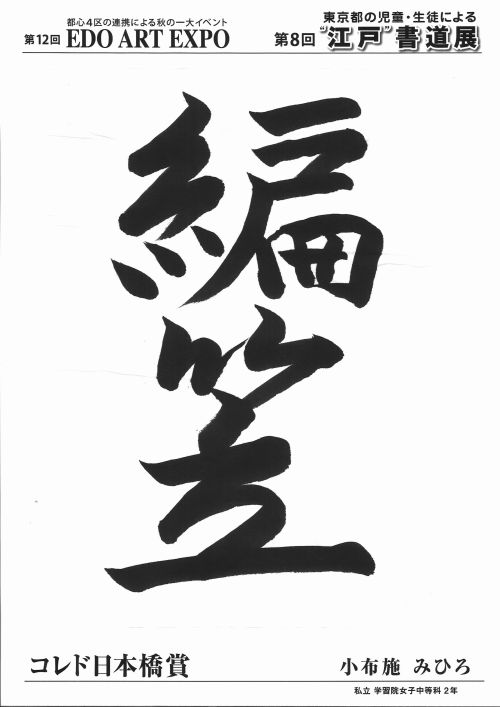 都心4区の連携による秋の一大イベント
第12回 EDO ART EXPO
東京都の児童・生徒による
第8回 “江戸”書道展
編
笠
コレド日本橋賞
小布施 みひろ
私立 学習院女子中等科 2年